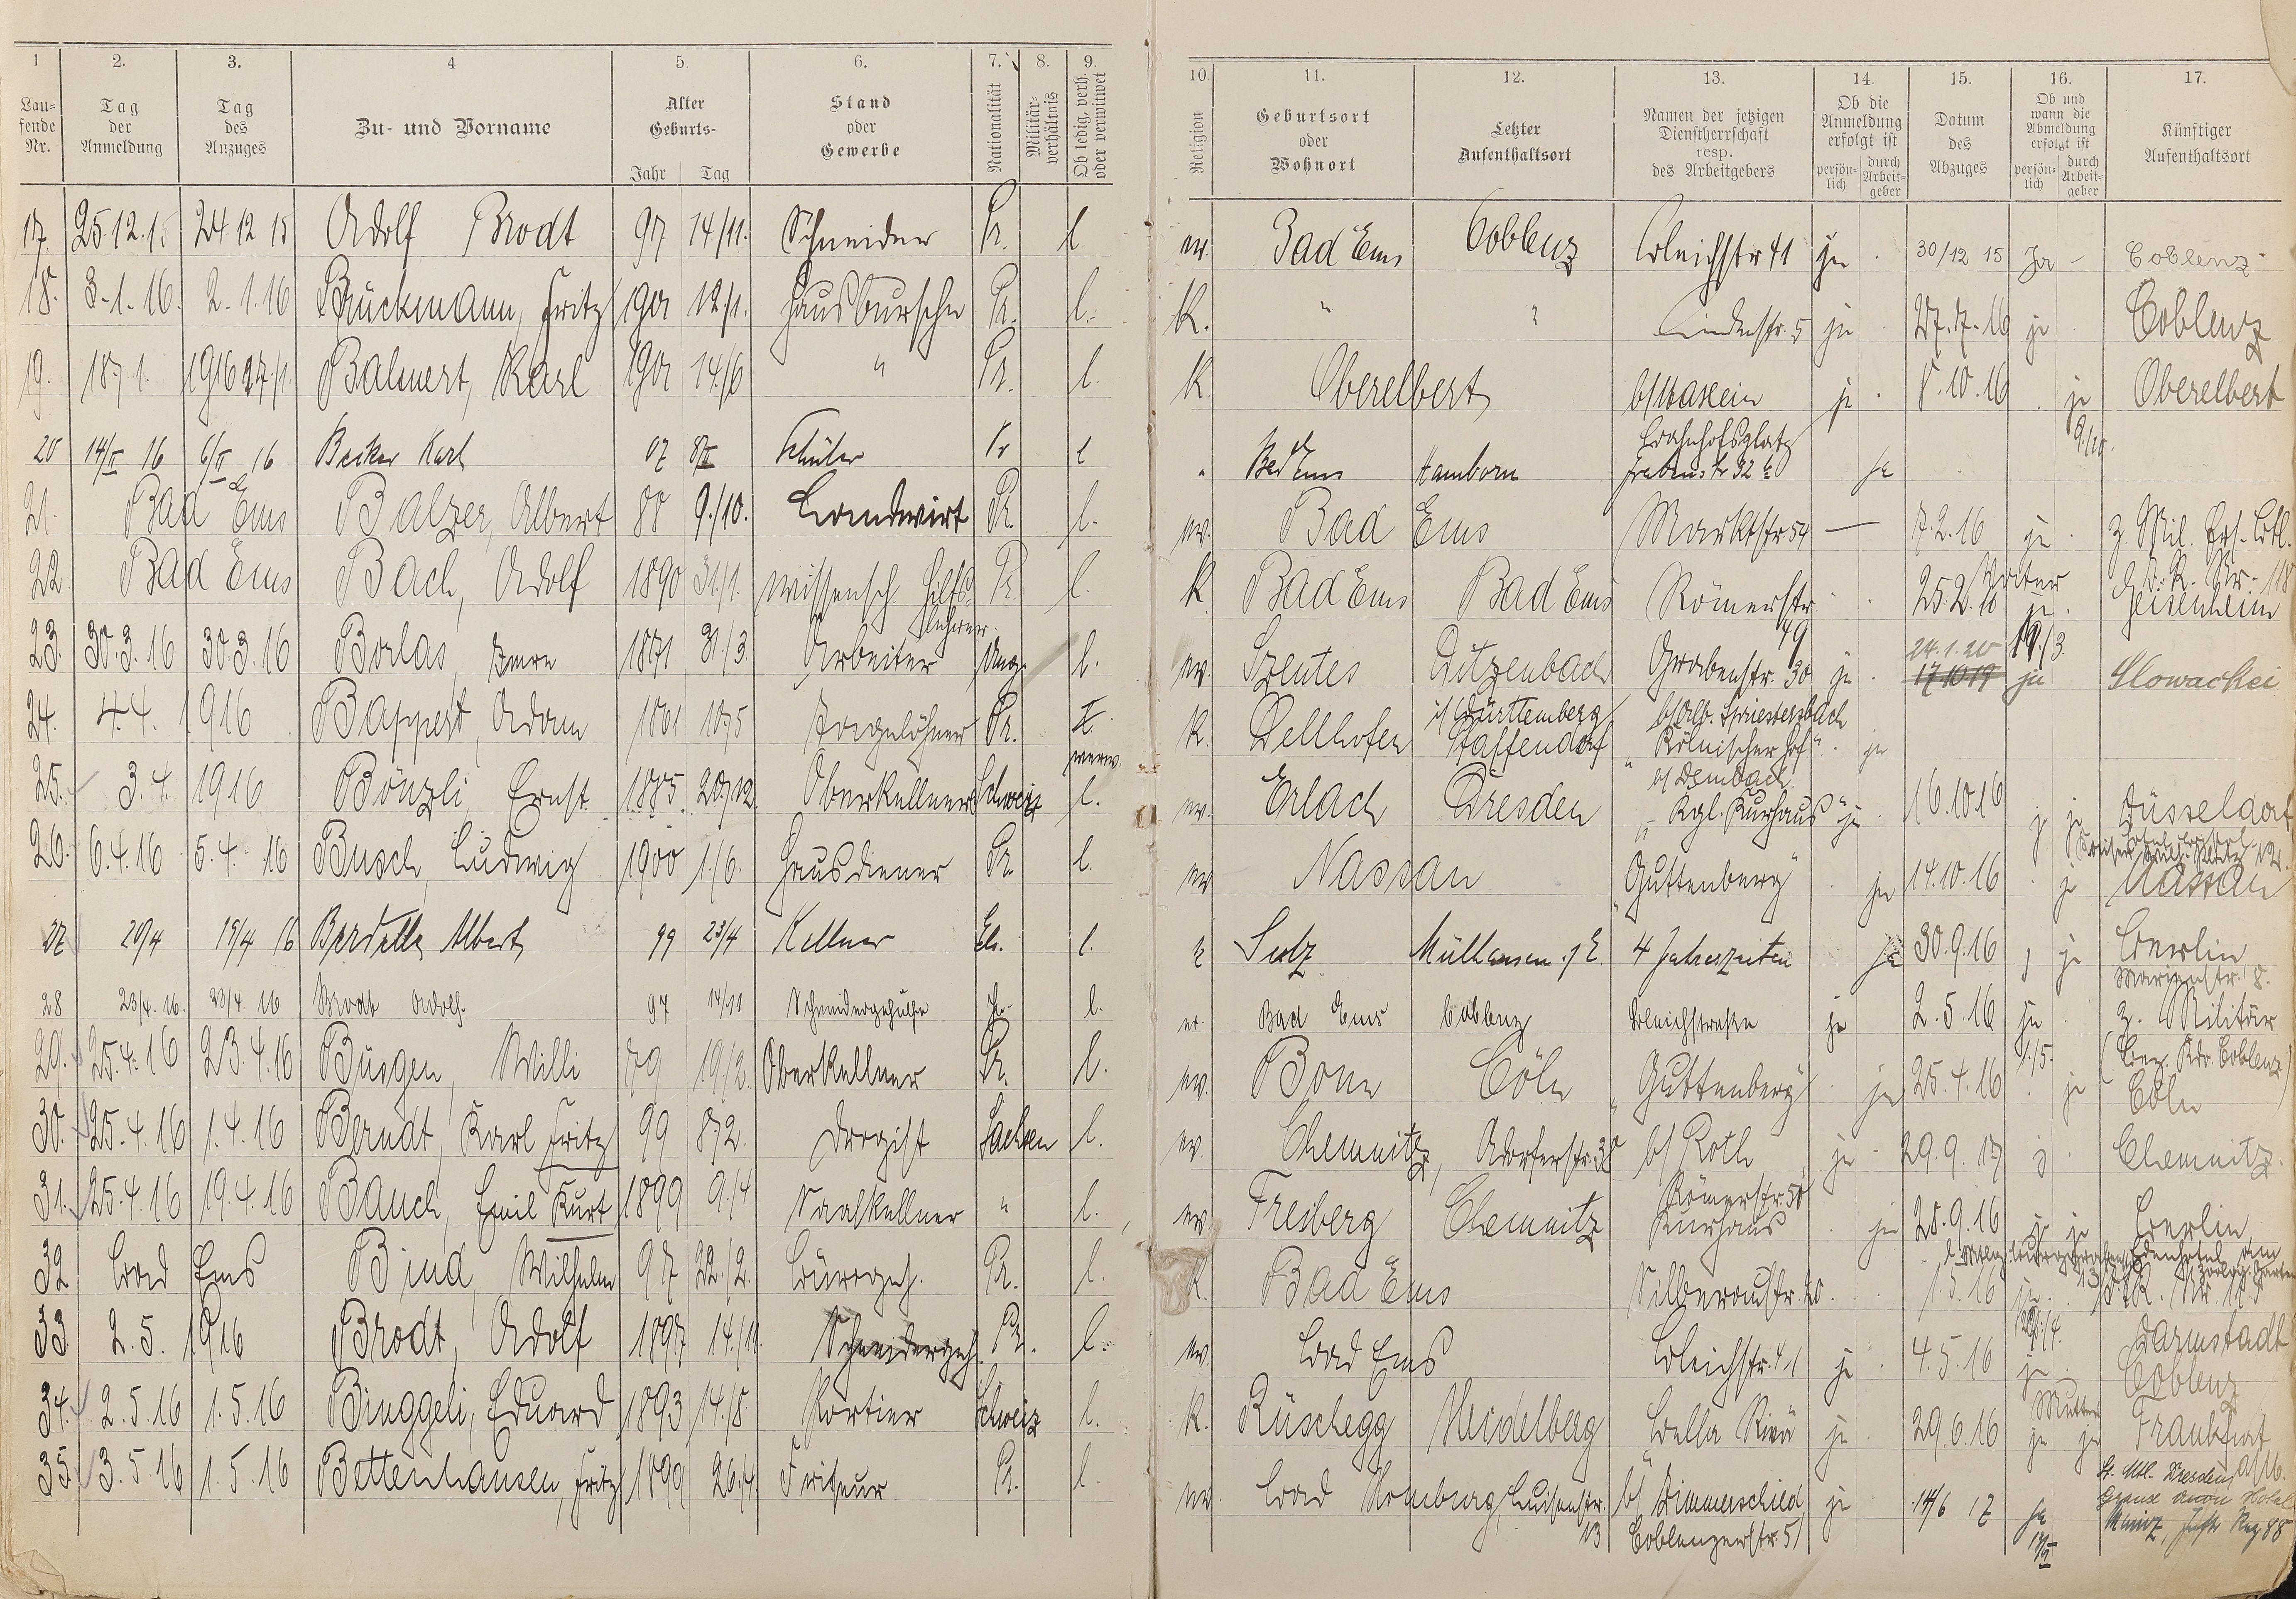 1 2. 3. 4 5. 6. 7. 8. 9.
Lau-
fende
Nr.
Tag
der
Anmeldung
Tag
des
Anzuges
Zu- und Vorname
Alter
Geburts-
Jahr Tag
Stand
oder
Gewerbe
Nationalität
Militär-
verhältnis
Ob ledig, verh.
oder verwitwet
10. 11. 12. 13. 14. 15. 16. 17.
Religion
Geburtsort
oder
Wohnort
Letzter
Aufenthaltsort
Namen der jetzigen
Dienstherrschaft
resp.
des Arbeitgebers
Ob die
Anmeldung
erfolgt ist
persön-
lich
durch
Arbeit-
geber
Datum
des
Abzuges
Ob und
wann die
Abmeldung
erfolgt ist
persön-
lich
durch
Arbeit-
geber
Künftiger
Aufenthaltsort
17. 25.12.15 24 12 15 Adolf Brodt 97 14/11. Schneider Pr. l ev. Bad Ems Coblenz Bleichstr 41 ja 30/12 15 Ja – Coblenz
18. 3.1.16. 2.1.16 Bruckmann, Fritz 12./1. Hausbursche Pr. l. K. " " Lindenstr. 5 ja 27.7.16 ja Coblenz
19. 18/1. 1916 Balmert, Karl 14./6 " Pr. l. K Oberelbert ja 8.10.16 ja Oberelbert
20 14/II 16 6/II 16 Becker Karl 07 8/II Schüler Pr l " Bad Ems Hamborn Bahnhofsplatz
Grabenstr 32 ja
21. Bad Ems Balzer, Albert 88 9./10. Landwirt Pr. l. ev. Bad Ems Marktstr 54 — 7.2.16 ja z. Mil.
22. Bad Ems Bach, Adolf 1890 31./1. wissensch. Hilfs-
lehrer Pr. l. K. Bad Ems Bad Ems Römerstr.
49 25.2.16 Vater
ja. Geisenheim
23. 30.3.16 30.3.16 Borlas, Imre 1871 31./3. Arbeiter Ung. l. ev. Szentes Ditzenbach
i/ Württemberg Grabenstr. 30 ja 24.1.20
17 10 19 ja Slowackei
24. 4.4. 1916 Bappert, Adam 1861 10/5 Tagelöhner Pr. verw. K. Dellhofen Staffendorf b/ Alb. Spriestersbach
"Kölnischer Hof" ja
25. 3.4. 1916 Bönzli, Ernst 1885. 20/12. Oberkellner Schweiz l. ev. Erlach Dresden b/ Dembach
"Kgl. Kurhaus" ja 16.10.16 ja Düsseldorf
26. 6.4.16 5.4.16 Busch, Ludwig 1900 1./6. Hausdiener Pr. l. ev Nassau "Guttenberg" ja 14.10.16 ja Nassau
27 20/4 19/4 16 Albert 99 23/4 Kellner Els. l. Sulz Mülhausen i/E. 4 Jahreszeiten ja 30.9.16 ja Berlin
Marienstr. 8.
28 23/4.16. 23/4 16 Brodt Adolf. 97 14/11 Schneidergehülfe Pr. l. ev. Bad Ems Coblenz Bleichstraße ja 2.5.16 ja
1./5. z. Militär
(Bez. Kdo. Coblenz)
29. 25.4.16 23.4.16 Büsgen, Willi 79 19./2. Oberkellner Pr. l. ev. Bonn Cöln "Guttenberg" ja 25.4.16 ja Cöln
30. 25.4.16 1.4.16 Berndt, Karl Fritz 99 8/2. Drogist Sachsen l. ev. Chemnitz, Adorferstr. b/ Roth
Römerstr. 50 ja 29.9.17 j. Chemnitz.
31. 25.4.16 19.4.16 Bauch, Emil Kurt 1899 9./4 Saalkellner " l. ev. Freiberg Chemnitz Kurhaus ja 28.9.16 ja Berlin
32 Bad Ems Bind, Wilhelm 97 22./2. Bürogeh. Pr. l. K. Bad Ems Silberaustr. 20. 1.5.16 ja Darmstadt
33. 2.5. 1916 Brodt, Adolf 1897 14./11. Schneidergeh. Pr. l. ev. Bad Ems Bleichstr. 41 ja 4.5.16 ja
Mutter Coblenz
34. 2.5.16 1.5.16 Binggeli, Eduard 1893 14./8. Portier Schweiz l. K. Rüschegg Heidelberg Bella Riva ja 29.6.16 ja Frankfurt
a/M.
35. 3.5.16 1.5.16 Bettenhausen, Fritz 1899 26./4. Friseur Pr. l. ev. Bad Homburg, Luisenstr.
13 b/ Wimmerschied
Coblenzerstr. 51 ja 14/6 17 ja Grand Hotel
Mainz, Inftr Reg 88